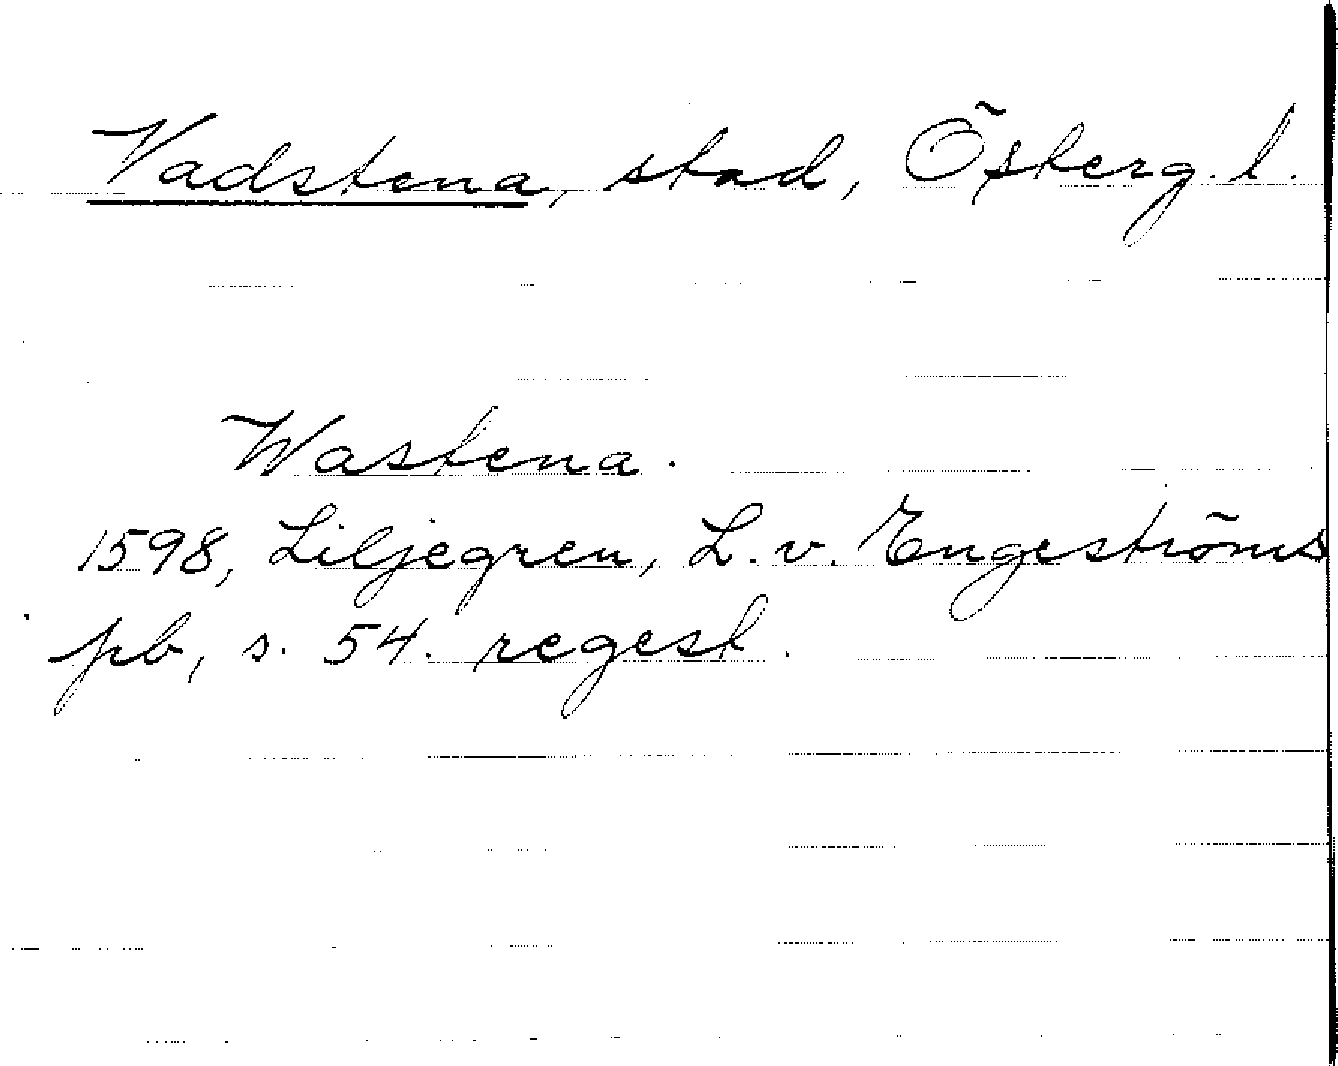 Vadstena, stad, Österg. l.
Wastena.
1598, Liljegren, L. v. Engeströms
pb, s. 54. regest.